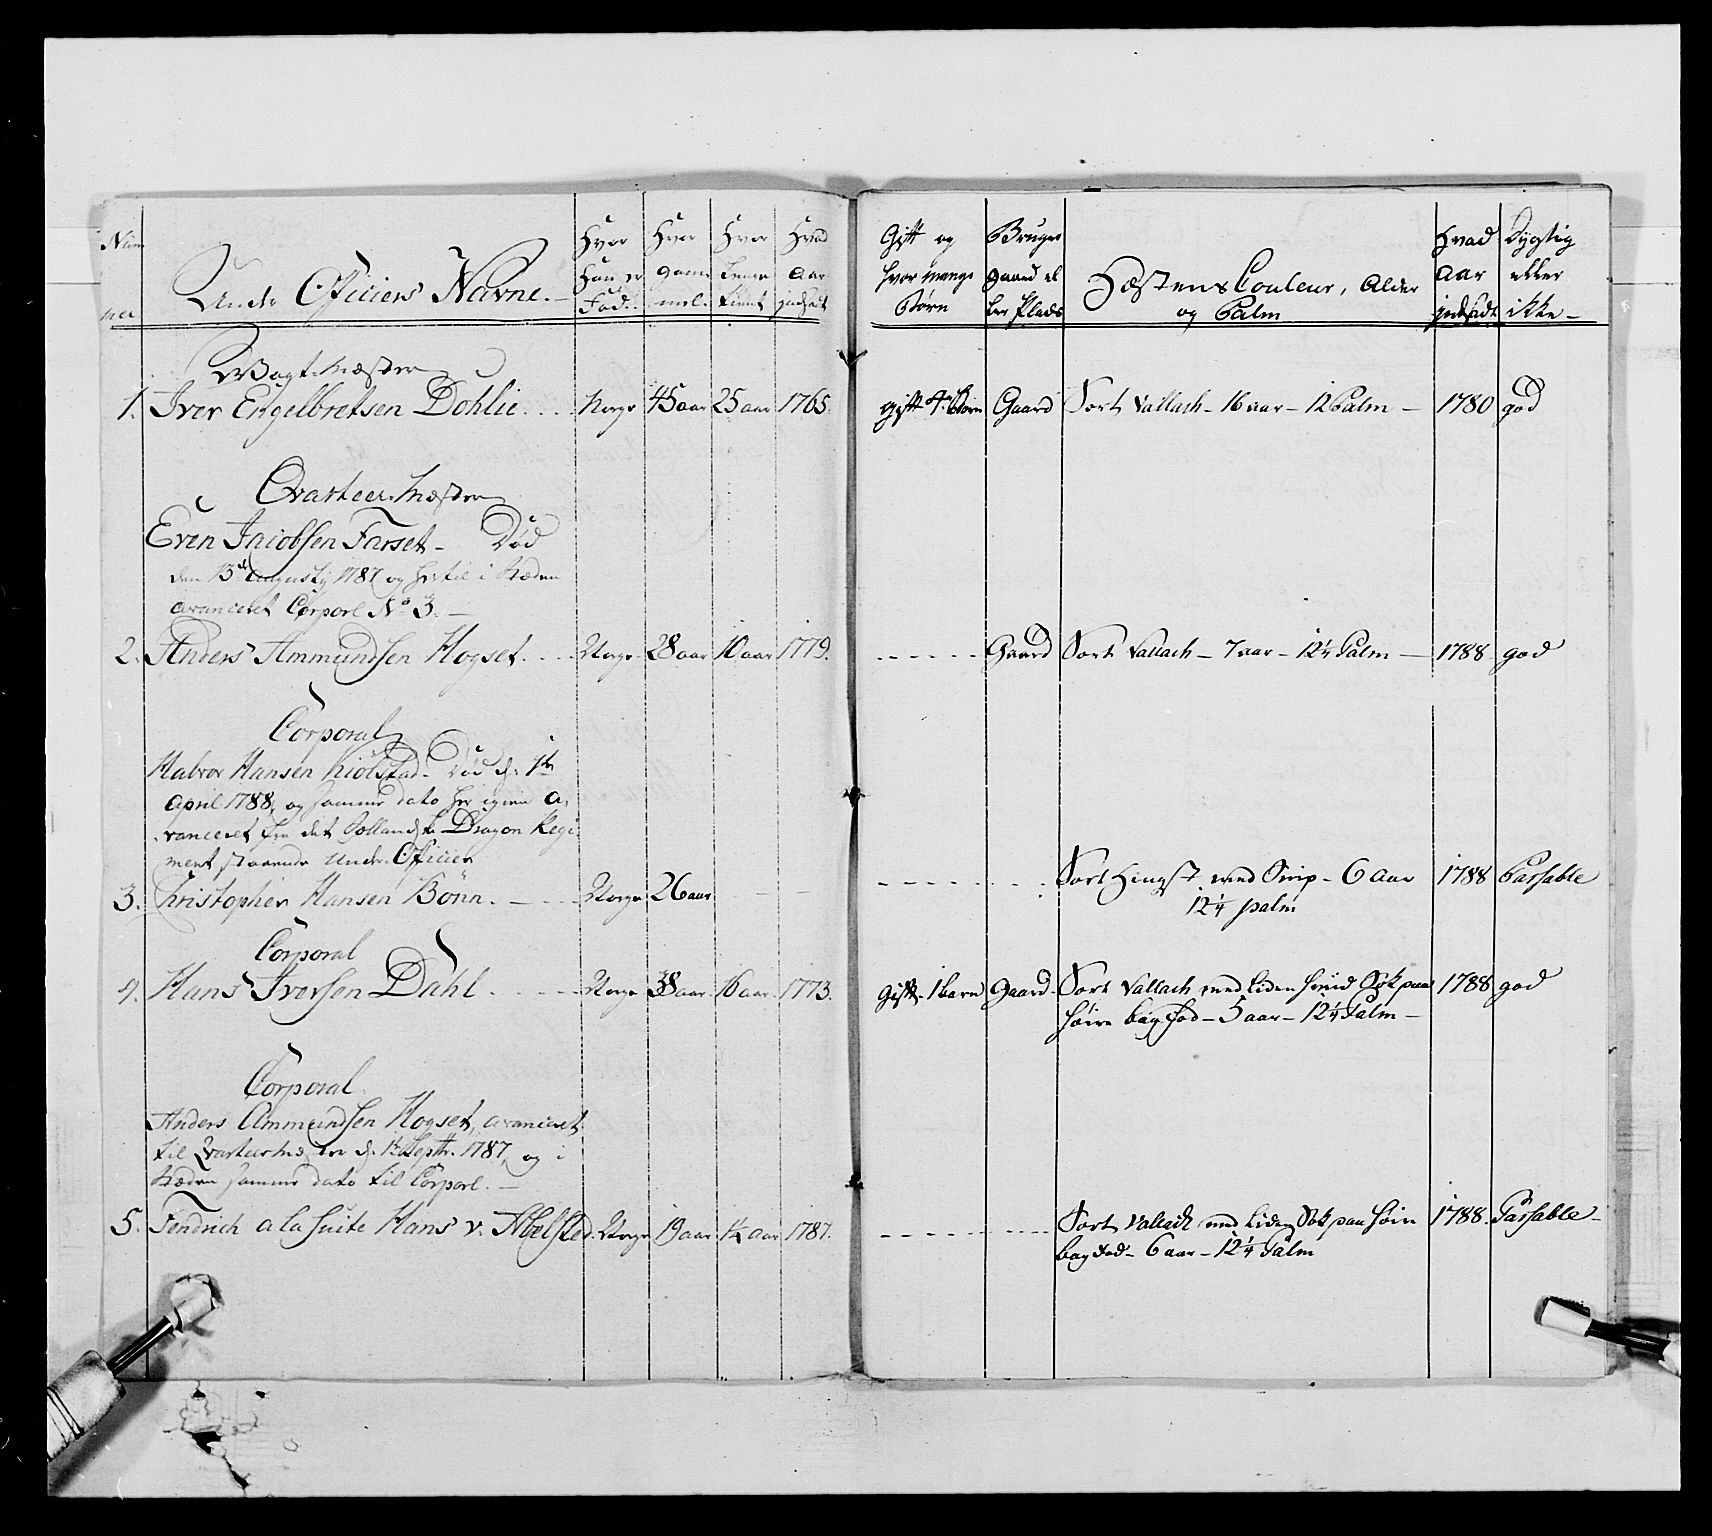 Num
mer
Under Officiers Navne.
Hvor
Han er
Fød.
Hvor
gam
mel.
Hvor
lenge
tient
Hvad
Aar
Gift og
hvor mange
Børn
Bruger
gaard el
ler Plads
Hæstens Couleur, Alder
og Palm
Hvad
Aar
indsadt
Dygtig
eller
ikke -
Vagtmæster
1. Iver Engelbretsen Dohlie. . . Norge 45 aar 25 aar 1765. gift 4. Børn Gaard Sort Vallach - 16 aar - 12 Palm - 1780 god
Qvarteermæster
Even Jacobsen Farset - Død
den 13de Augusty 1787 og her til i Stæden
avanceret Corporl No 3. -
2. Anders Ammundsen Hogset. . . Norge 28 aar 10 aar 1779. - - - - - - Gaard Sort Vallach - 7 aar - 12¼ Palm - 1788 god
Corporal
Halvor Hansen Kiølstad - Død d. 1te
April 1788, og samme dato her igien a-
vanceret fra det Dragon Regi-
ment staaende Under Officier
3. Christopher Hansen Bönn. - - Norge 26 aar - - - - - - - - Sort Hingst med Snip - 6 Aar 1788 Passable
12¼ palm
Corporal
4. Hans Iversen Dahl . - - - Norge 38 aar 16 aar 1773. gift - 1 barn Gaard - Sort Vallach med liden hvid Sok paa 1788 god
høire bag fod - 5 aar - 12¼ Palm -
Corporal
Anders Ammundsen Hogset, avanceret
til Qvarteermæster d. 1te Septr. 1787, og i
Stæden samme dato til Corporl. -
5. Fendrich a la Suite Hans v. Abelsted. Norge 19 aar ½ aar 1787. - - - - - - Sort Vallack med liden Sok paa høire 1788. Passable -
bag fod - 6 aar - 12¼ Palm